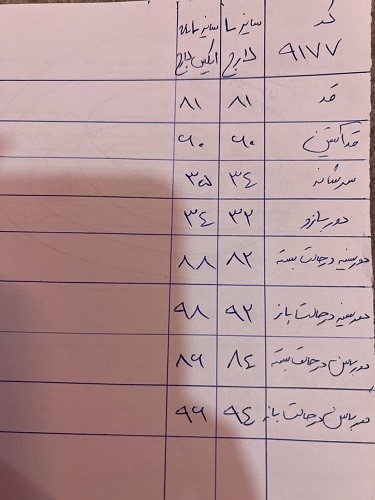 کد ۹۱۷۷ سایز ۱ لارج سایز ۲ ایکس لارج
قد ۸۱ ۸۱
قد آستین ۶۰ ۶۰
سرشانه ۳۴ ۳۵
دور بازو ۳۲ ۳۴
دور سینه در حالت بسته ۸۲ ۸۸
دور سینه در حالت باز ۹۲ ۹۸
دور باسن در حالت بسته ۸۴ ۸۶
دور باسن در حالت باز ۹۴ ۹۶